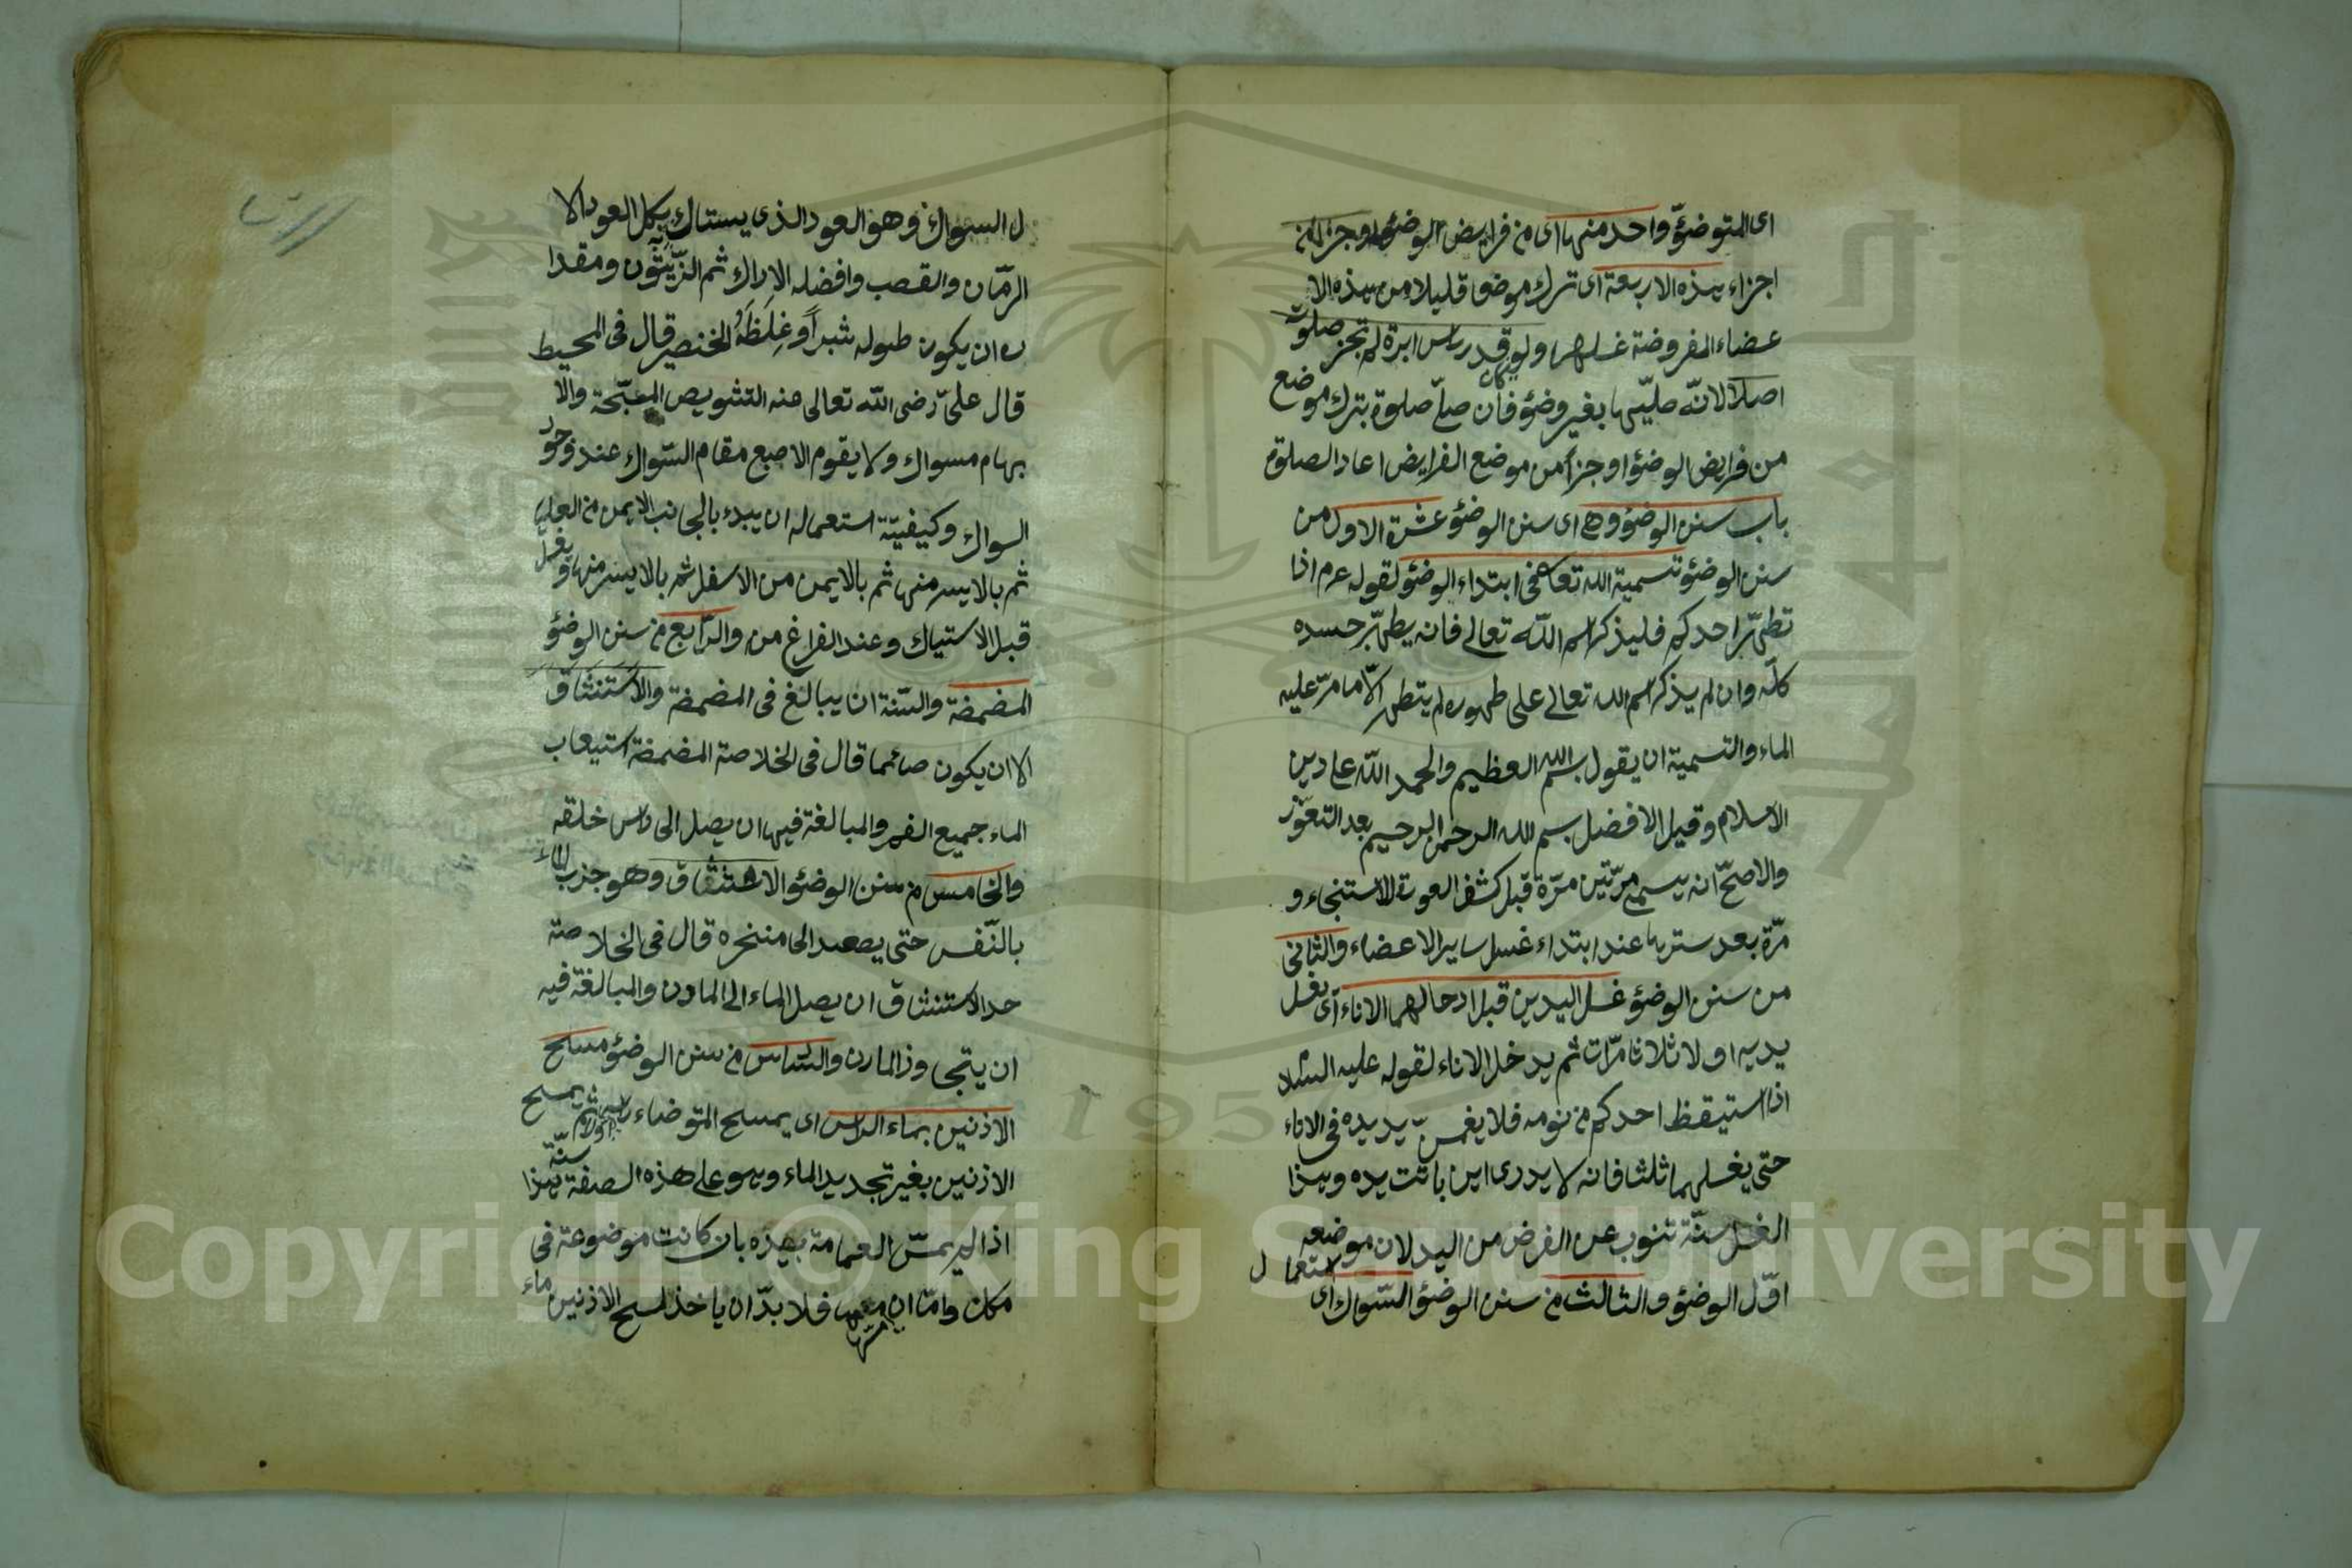 اى المتوضئ واحد منها اى من فرايض الوضؤ او جزأ من
اجزاء هذه الاربعة اى ترك موضعا قليلا من هذه الا
عضاء المفروضة غسلها ولو كان قدر رأس ابرة لم تجز صلوته
اصلا لانه صليها بغير وضؤ فان صلّ صلوة بترك موضع
من فرايض الوضؤ او جزأ من موضع الفرايض اعاد الصلوة
باب سنن الوضؤ وهى اى سنن الوضؤ عشرة الاول من
سنن الوضؤ تسمية الله تعا فى ابتداء الوضؤ لقوله عم اذا
تطهّر احدكم فليذكر اسم الله تعالى فانه يطهّر جسده
كلّه وان لم يذكر اسم الله تعالى على طهوره لم يتطهر الاّ ما مرّ عليه
الماء والتسمية ان يقول بسم الله العظيم والحمد الله على دين
الاسلام وقيل الافضل بسم الله الرحمن الرحيم بعد التعوّذ
والاصحّ انه يسمى مرّتين مرّة قبل كشف العورة للاستنجاء و
مرّة بعد سترها عند ابتداء غسل ساير الاعضاء والثانى
من سنن الوضؤ غسل اليدين قبل ادخالهما الاناء اى يغسل
يديه اولا ثلاثا مرّات ثم يدخل الاناء لقوله عليه السلا
اذا استيقظ احدكم من نومه فلا يغمسنّ يديده فى الاناء
حتى يغسلهما ثلثا فانه لا يدرى اين باتت يده وهذا
الغسل سنّة تنوب عن الفرض من اليد لان موضعه
اوّل الوضؤ والثالث من سنن الوضؤ السّواك اى استعما ل
ل السواك وهو العود الذى يستاك به بكل العود الا
الرمّان والقصب وافضله الاراك ثم الزّيتون ومقدا
ره ان يكون طوله شبراً وغِلَظَهُ الخنصر قال فى المحيط
قال علىّ رضى الله تعالى عنه التشويص المسبّحة والا
بهام مسواك ولا يقوم الاصبع مقام السّواك عند وجود
السواك وكيفيّة استعماله ان يبدء بالجانب الايمن من العليا
ثم بالايسر منها ثم بالايمن من الاسفل ثم بالايسر منها ويغسل
قبل الاستياك وعند الفراغ من والرّابع من سنن الوضؤ
المضمضة والسّنة ان يبالغ فى المضمضة والاستنشاق
الا ان يكون صائما قال فى الخلاصة المضمضة استيعاب
الماء جميع الفم والمبالغة فيها ان يصل الى رأس خلقه
والخامس من سنن الوضؤ الاستنشاق وهو جذب الماء
بالنّفس حتى يصعد الى منخره قال فى الخلاصة
حد الاستنشاق ان يصل الماء الى المارن والمبالغة فيه
ان يتجاوز المارن والسّادس من سنن الوضؤ مسح
الاذنين بماء الرأس اى يمسح المتوضاء رأسه اولا ثم يمسح
الاذنين بغير تجديد الماء وهو على هذه الصفة سنّة هذا
اذا لم يمسّ العمامة بيده بان كانت موضوعة فى
مكان وامّا ان مسّها فلا بدّ ان ياخذ لمسح الاذنين ماء
Copyright © King Saud University
1957